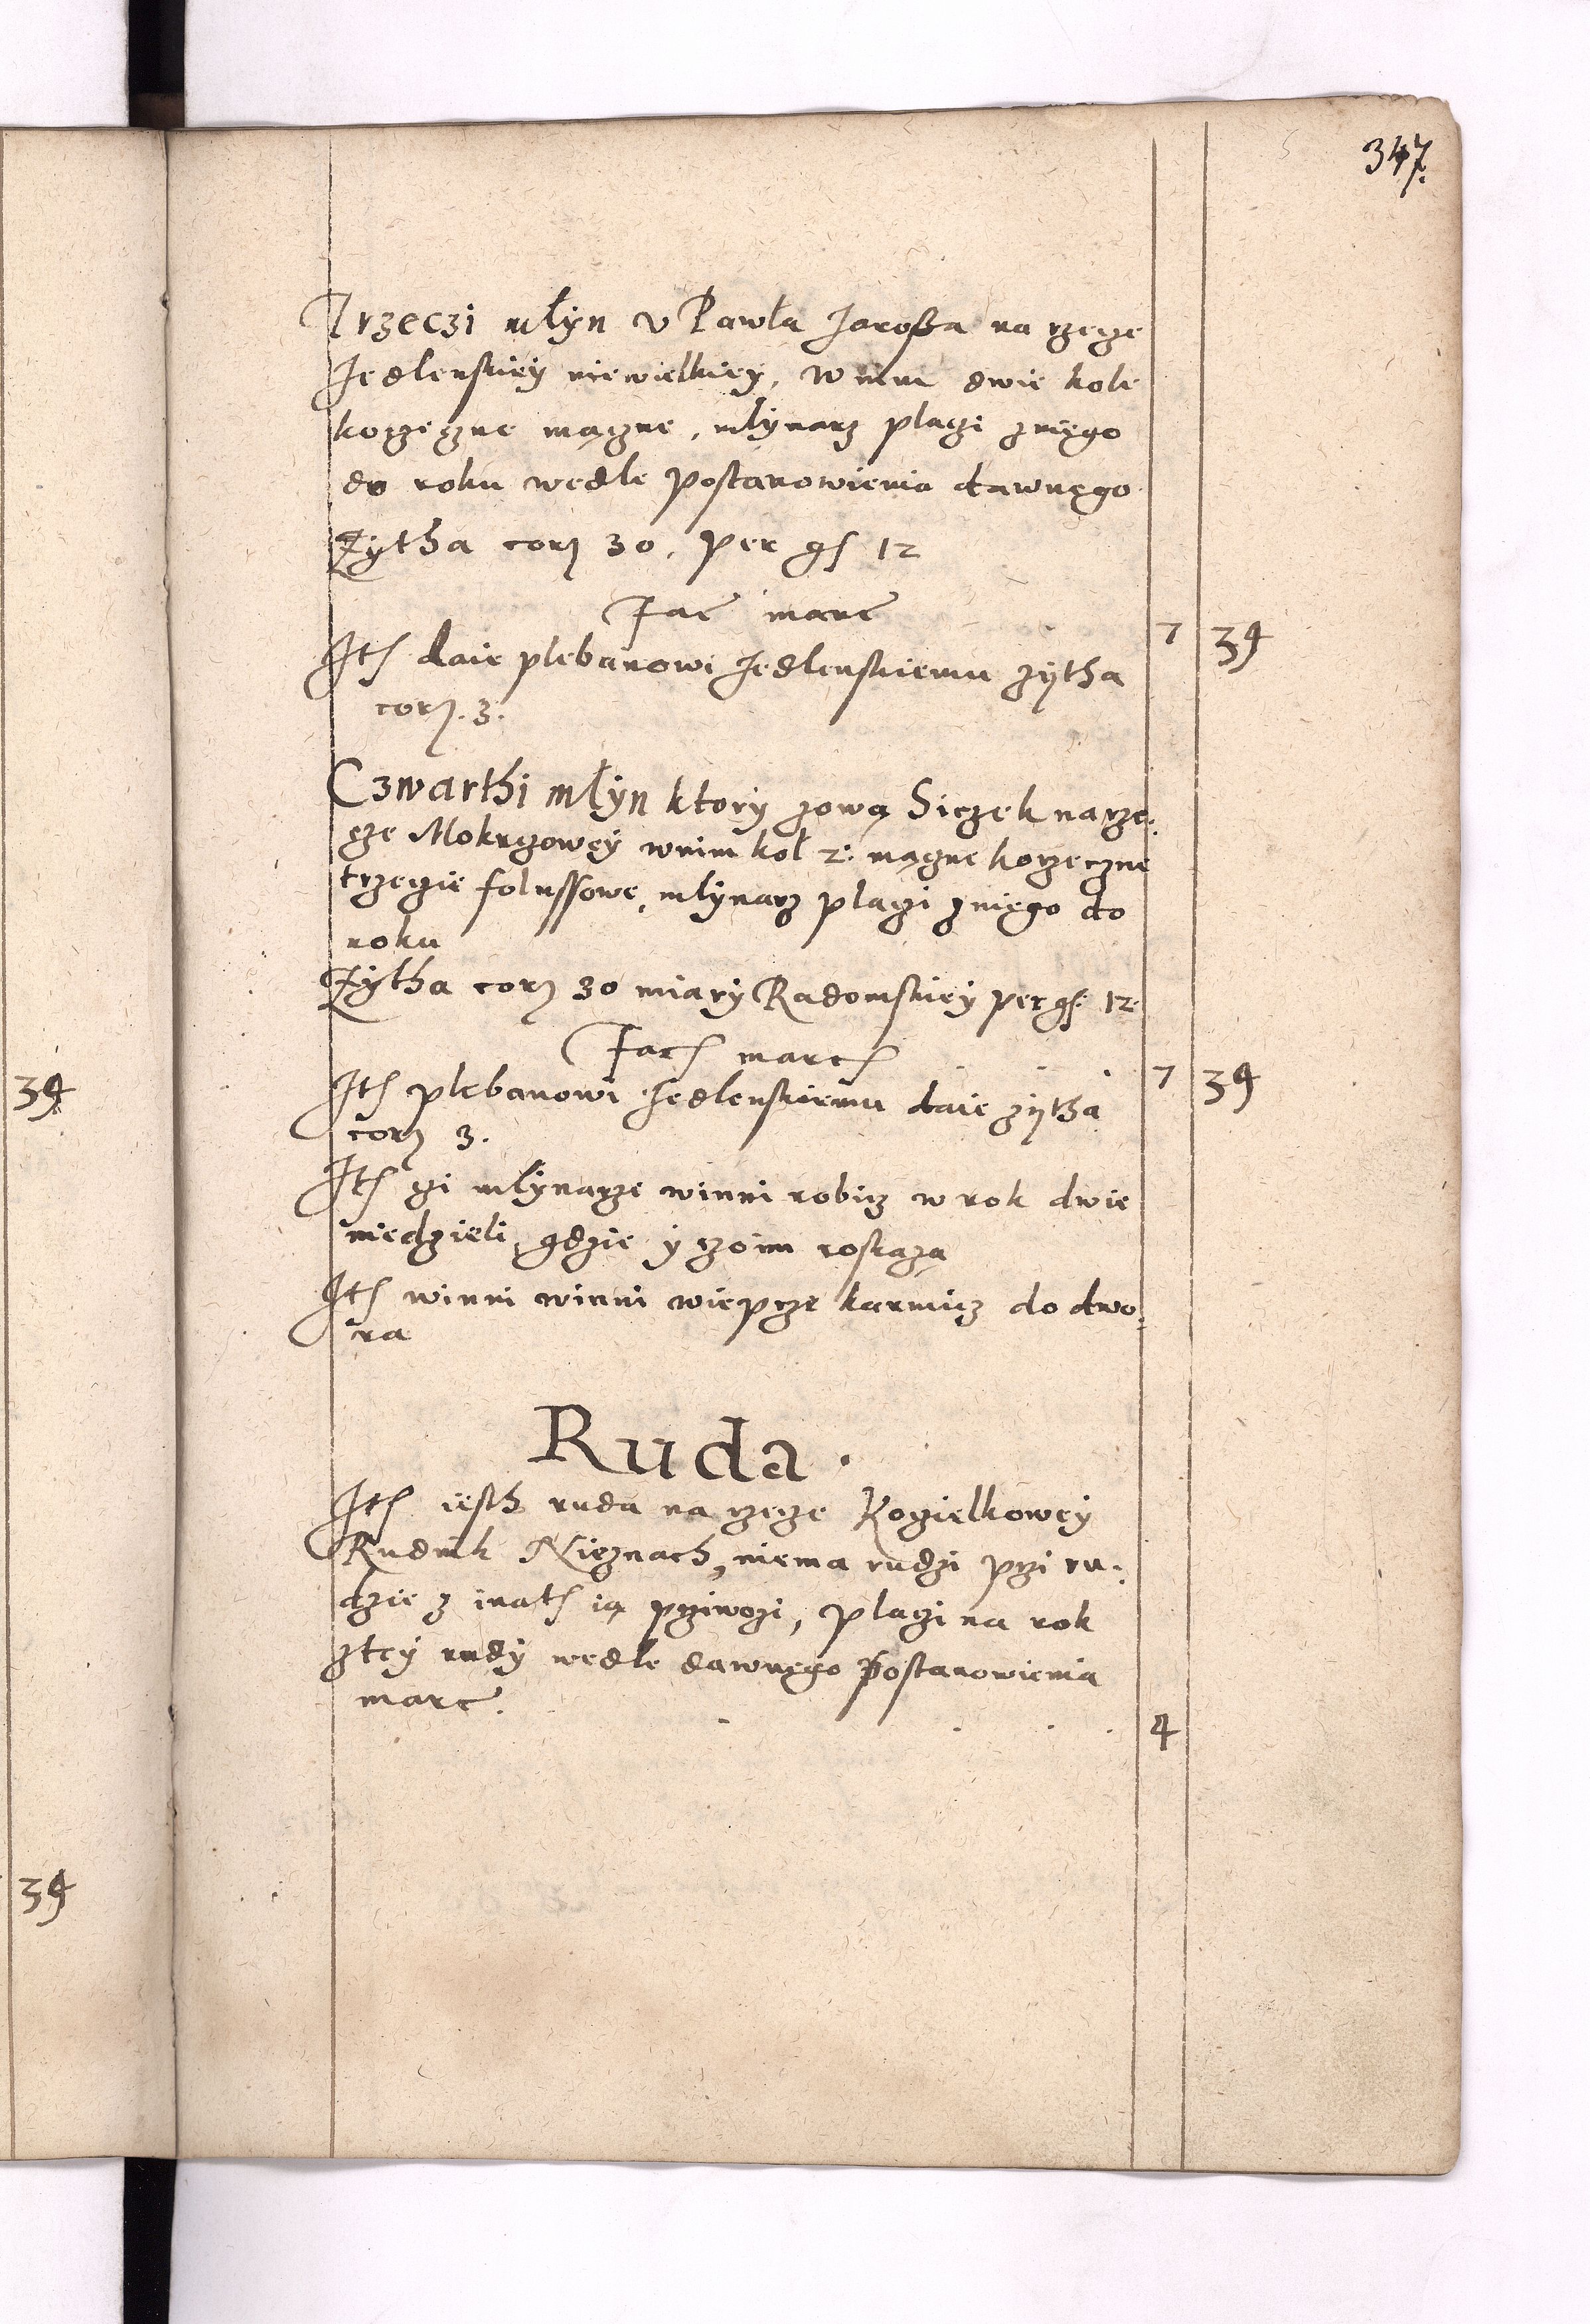 347.
Trzeczi młyn v Pawła Jarosza na rzecze
Jedlenskiey niewielkiey, w nim dwie kole
korzeczne mączne, młynarz płaczi z niego
do roku wedle postanowienia dawnego
Zytha corz 30, per gs 12
Fac marc 7 39
Its daie plebanowi Jedlenskiemu zytha
corz. 3.
Czwarthi młyn ktory zową Siczek na rze:
cze Mokrzowey w nim koł 2: mączne korzeczne
trzecie folussowe, młynarz płaczi z niego do
roku
Zytha corz 30 miary Radomskiey per gs. 12
Facs marcs 7 39
Its plebanowi Jedlenskiemu daie zytha
corz 3.
Its czi młynarze winni robicz w rok dwie
niedzieli, gdzie y czo im roskazą
Its winni winni wieprze karmicz do dwo:
ra
Ruda.
Its iesth ruda na rzecze Kozielkowey
Rudnik Nieznach, niema rudzi przi ru:
dzie z inats ią prziwozi, płaczi na rok
z tey rudy wedle dawnego postanowienia
marc. 4
39
39